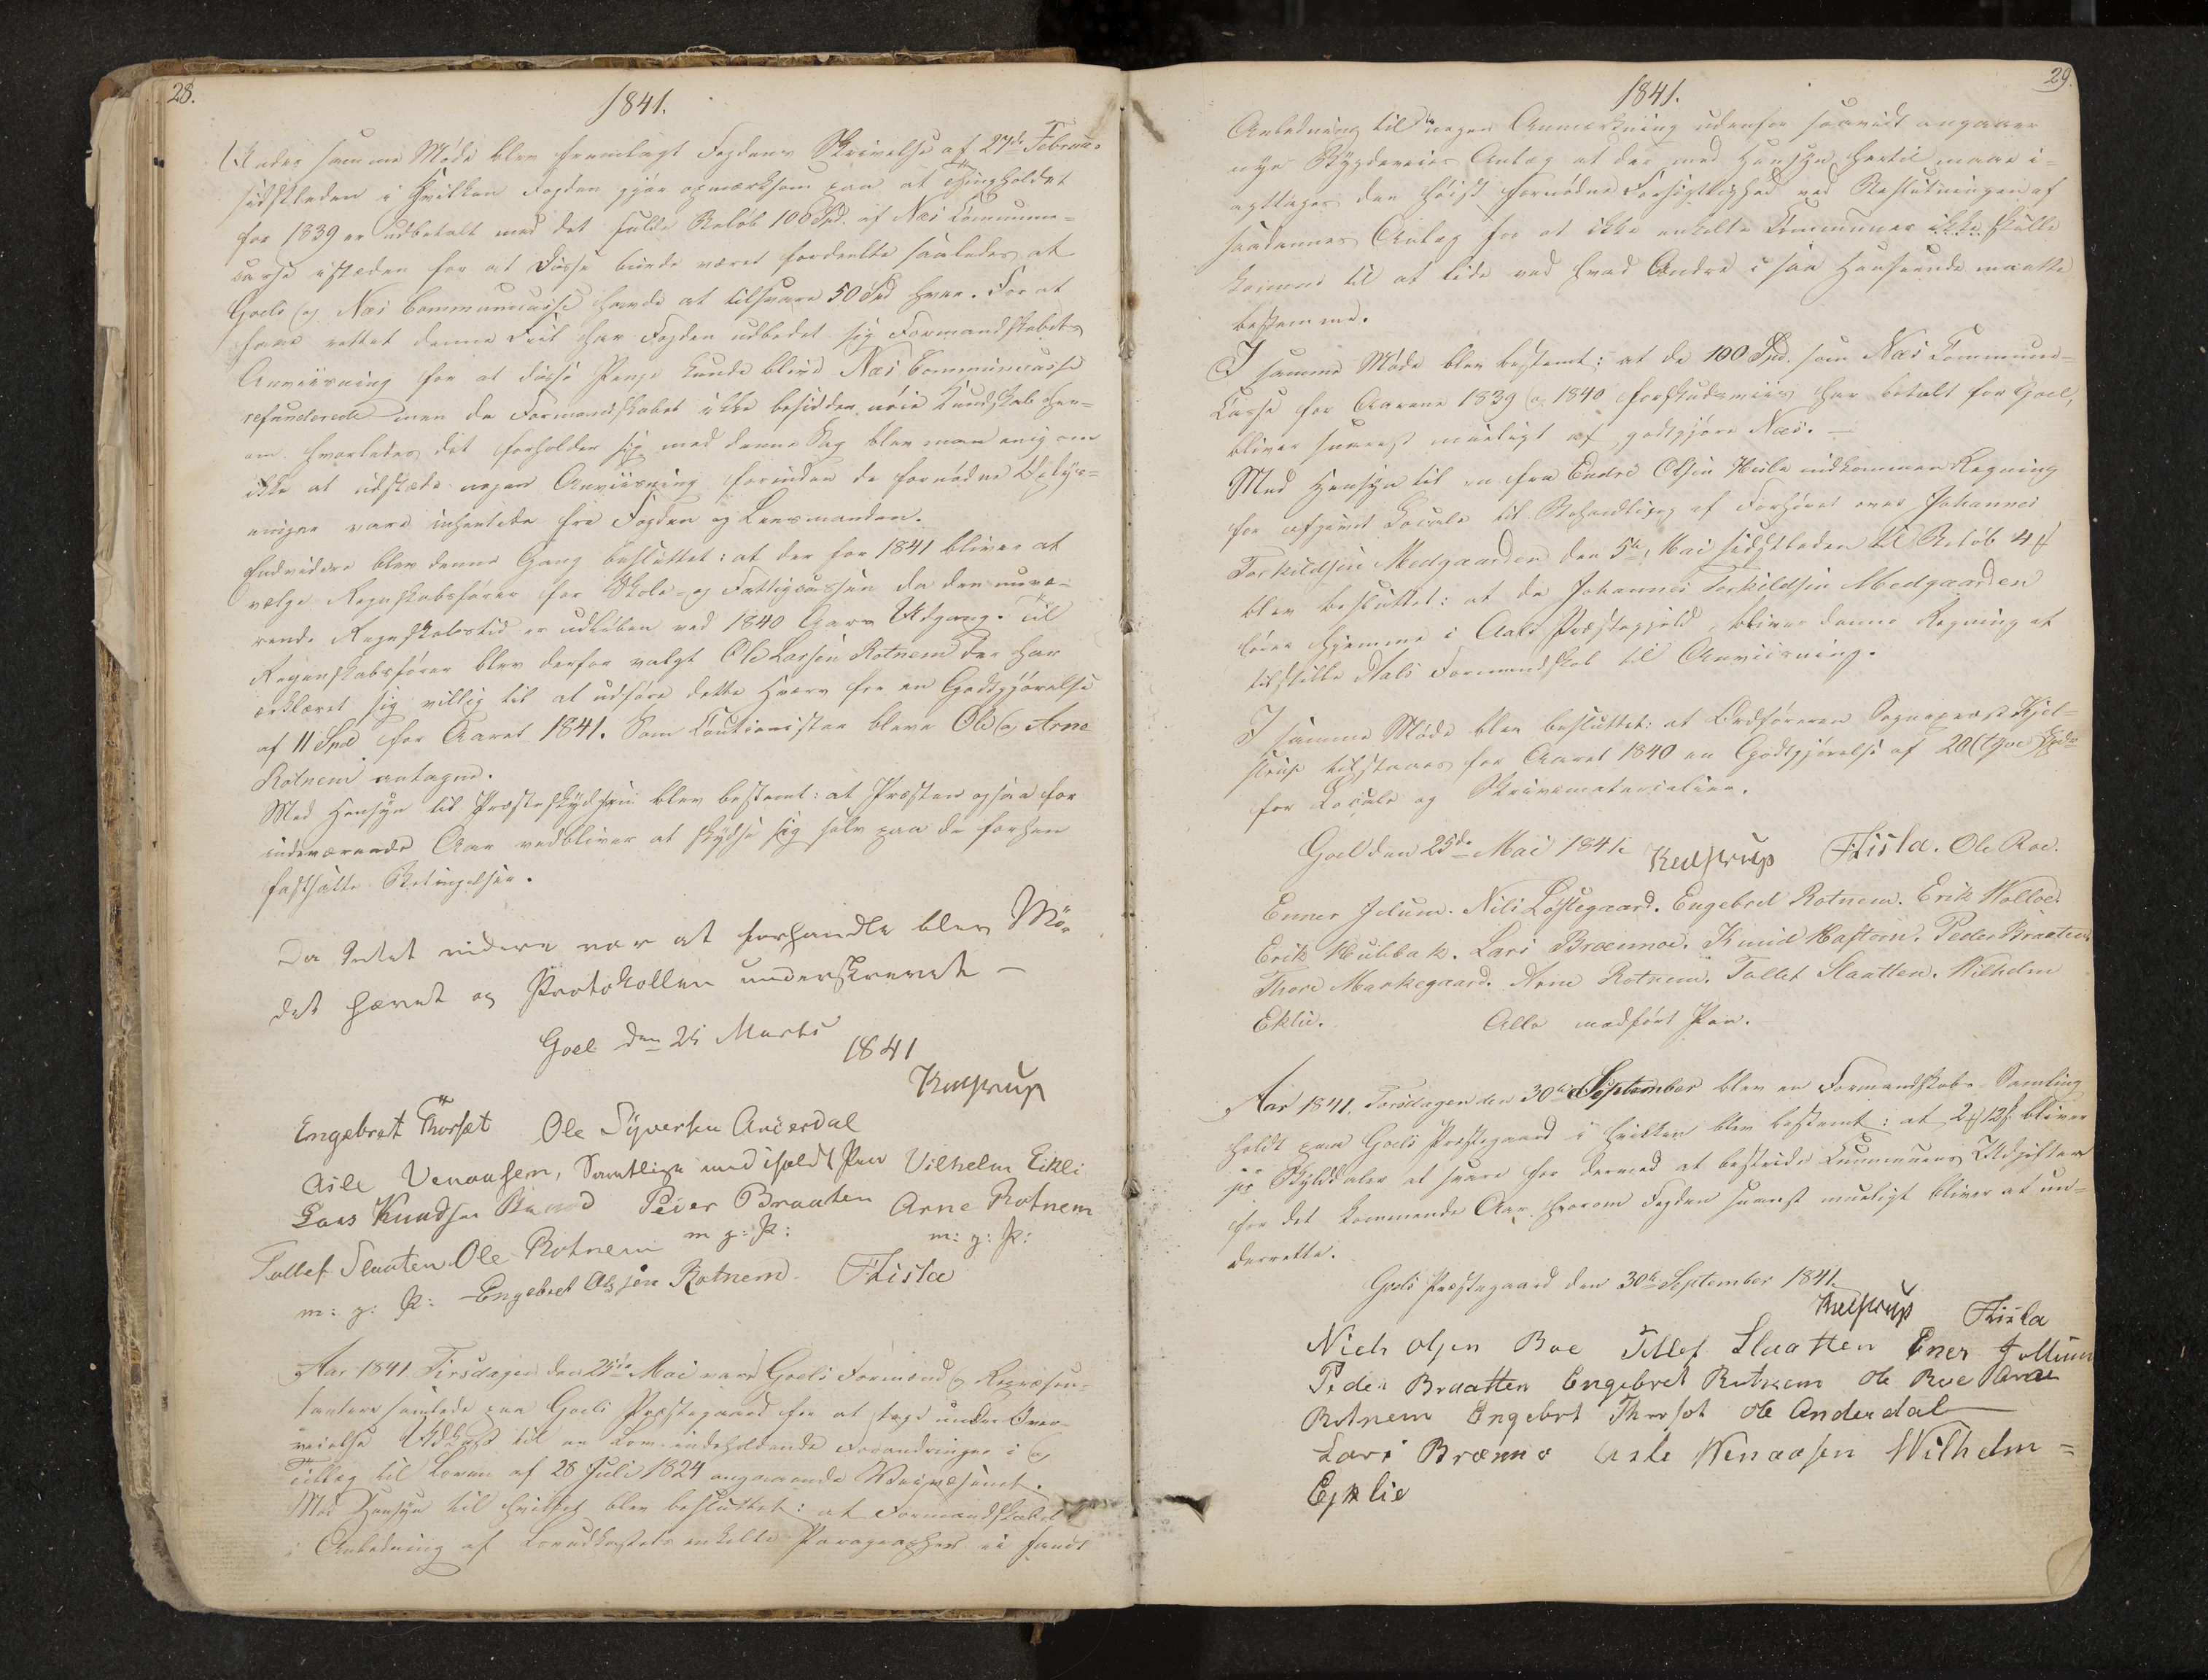 28.
1841.
Under samme Møde blev fremlagt Fogdens Skrivelse af 27de Februar
sidstleden i hvilken Fogden gjør opmærksom paa at Thingholdet
for 1839 er udbetalt med det fulde Beløb 100 Spd. af Næs Commune-
casse istæden for at disse burde været fordeelte saaledes at
Goels og Næs Communecasse havde at tilsvare 50 Spd hver. For at
faae rettet denne Feil har Fogden udbedet sig Formandskabets
Anviisning for at disse Penge kunde blive Næs Communecasse
refunderede men da Formandskabet ikke besidder nøie Kundskab her-
om hvorledes det forholder sig med denne Sag blev man enig om
ikke at udstæde nogen Anviisning forinden de fornødne Oplys-
ninger vare inhentede fra Fogden og Lensmanden.
Endvidere blev denne Gang besluttet: at der for 1841 bliver at
vælge Regnskabsfører for Skole- og Fattigcassen da den nuvæ-
rende Regnskabstid er udløben ved 1840 Aars Udgang. Til
Regnskabsfører blev derfor valgt Ole Larsen Rotnem der har
erklæret sig villig til at udføre dette Hverv for en Godtgjørelse
af 11 Spd for Aaret 1841. Som Cautionister bleve Ole og Arne
Rotnem antagne.
Med Hensyn til Præsteskydsen blev bestemt: at Præsten ogsaa for
indeværende Aar vedbliver at skydse sig selv paa de forhen
fastsatte Betingelser.
Da Intet videre var at forhandle blev Mø-
det hævet og Protokollen underskrevet —
Goel den 25 Marts
1841
Kielstrup
Engebret Thorset Ole Syversen Anderdal
Asle Venaasen, Samtlige med iholdt Pen Vilhelm Eikli
Lars Knudsen Peder Braaten Arne Rotnem
Tollef Slaaten Ole Rotnem m: p: P: m: p: P:
m: p: P: Engebret Olsen Rotnem. THisla
Aar 1841 Tirsdagen den 25de Mai vare Goels Formænd og Repræsen-
tantere samlede paa Goels Præstegaard for at tage under Over-
veielse Udkast til en Lov indeholdende Forandringer i og
Tillæg til Loven af 28 Juli 1824 angaaende Veivæsenet.
Med Hensyn til hvilket blev besluttet: at Formandskabet
i Anledning af Lovudkastets enkelte Paragrapher ei fandt
29.
1841.
Anledning til nogen Anmærkning udenfor saavidt angaaer
nye Bygdeveies Anlæg at der med Hensyn hertil maae i-
agttages den høist fornødne Forsigtighed ved Beslutningen af
saadannes Anlæg for at ikke enkelte Communer ikke skulle
komme til at lide ved hvad Andre i saa Henseende maatte
bestemme.
I samme Møde blev bestemt: at de 100 Spd. som Næs Commune-
Casse for Aarene 1839 og 1840 forskudsviis har betalt for Goel,
bliver snarest mueligt at godtgjøre Næs. —
Med Hensyn til en fra Endre Olsen Hisla indkommen Regning
for afgivet Locale til Behandling af Forhøret over Johannes
Torkildsen Medgaarden den 5te Mai sidstleden til Beløb 4
blev besluttet: at da Johannes Torkildsen Medgaarden
hører hjemme i Aals Præstegjeld, bliver denne Regning at
tilstille Aals Formandskab til Anviisning.
I samme Møde blev besluttet: at Ordføreren Sognepræst Kjel-
strup tilstaaes for Aaret 1840 en Godtgjørelse af 20 (tyve) Spdr
for Locale og Skrivematerialier.
Goel den 25de Mai 1841. Kielstrup THisla. Ole Roe.
Enner Jelum. Nils Løstegaard. Engebret Rotnem. Erik Wolloe.
Erik Hulbak. Lars Brænnoe. Knud Haftorn. Peder Braaten
Thore Markegaard. Arne Rotnem. Tollef Slaatten. Wilhelm
Eklie. Alle medført Pen.
Aar 1841. Torsdagen den 30te September blev en Formandskabs Samling
holdt paa Goels Præstegaard i hvilken blev bestemt: at 2 12 s. bliver
pr Skylddaler at svare for dermed at bestride Communens Udgifter
for det kommende Aar hvorom Fogden snarest mueligt bliver at un-
derrette.
Goels Præstegaard den 30te September 1841.
Kielstrup THisla
Niels Olsen Boe Tollef Slaatten Ener Jellum
Peder Braatten Engebret Rotnem Ole Roe Arne
Rotnem Engebrt Thorset Ole Anderdal
Lars Brænno Asle Wenaasen Wilhelm =
Ejklie